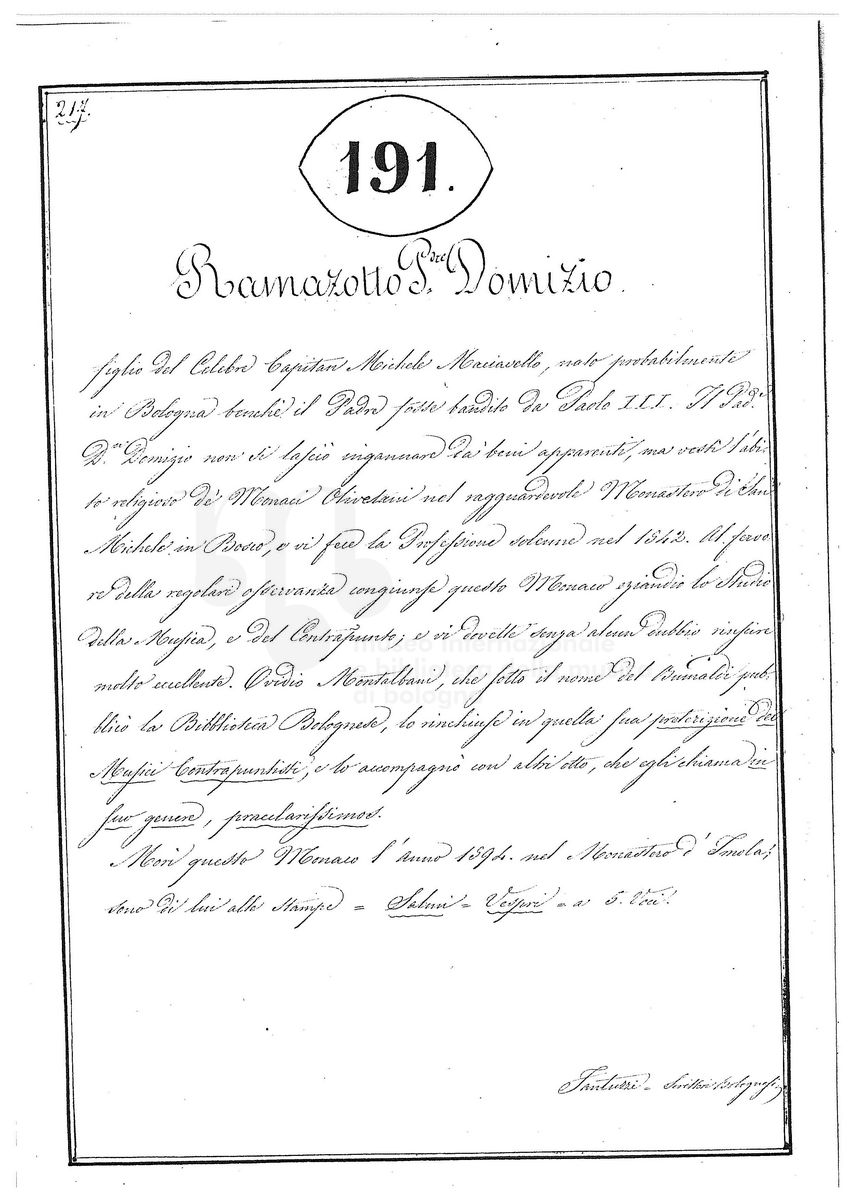 217.
191.
Ramazotto P.dre Domizio.
figlio del Celebre Capitan Michele Maciavello, nato probabilmente
in Bologna benchè il Padre fosse bandito da Paolo III. Il Pad.e
D.n Domizio non si lasciò ingannare da' beni apparenti, ma vestì l'abi-
to religioso de' Monaci Olivetani nel ragguardevole Monastero di San
Michele in Bosco, e vi fece la Professione solenne nel 1542. Al fervo-
re della regolare osservanza congiunse questo Monaco eziandio lo Studio
della Musica, e del Contrapunto; e vi dovette senza alcun dubbio riuscire
molto eccellente. Ovidio Montalbani, che sotto il nome del Bumaldi pub-
blicò la Bibblioteca Bolognese, lo rinchiuse in quella sua proterizione dei
Musici Contrapuntisti, e lo accompagnò con altri otto, che egli chiama in
suo genere, praeclarissimos.
Morì questo Monaco l'Anno 1594. nel Monastero d'Imola;
sono di lui alle stampe = Salmi = Vespri = a 5. Voci.
Fantuzzi = Scrittori Bolognesi
museo internazionale
e biblioteca della musica
di bologna